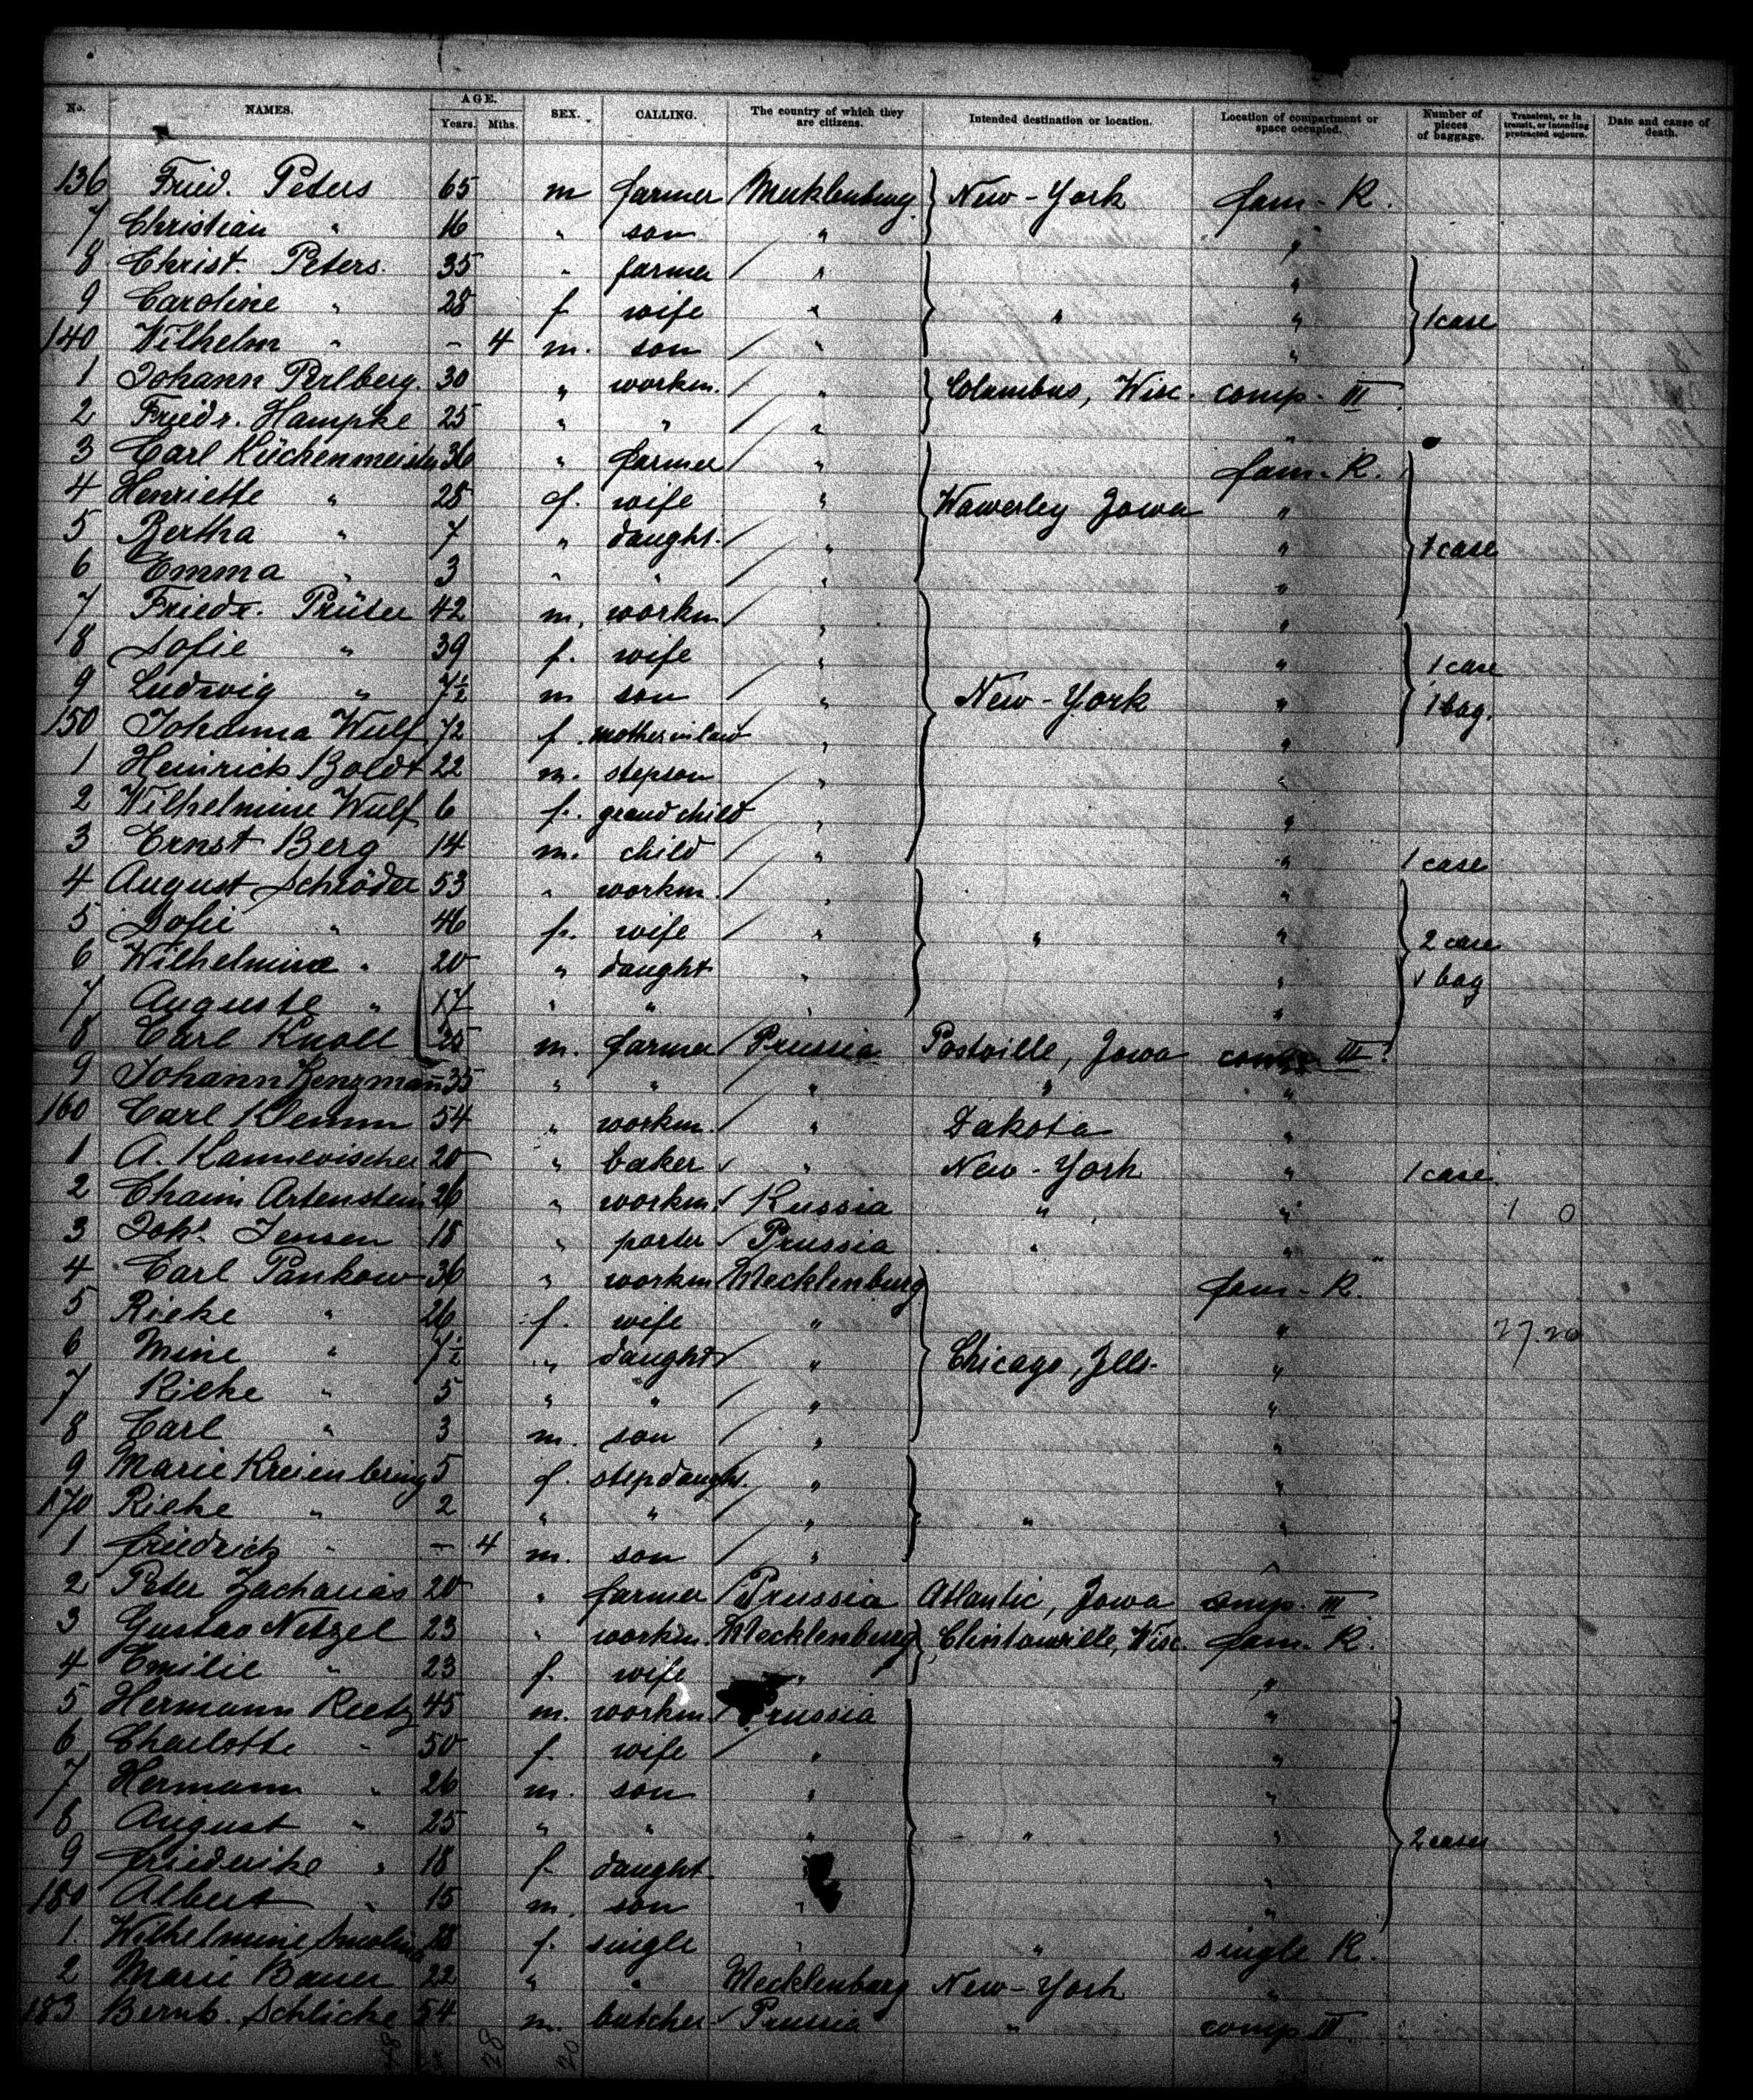 No. NAMES. AGE. Years. Mths. SEX. CALLING. The country of which they are citizens. Intended destination or location. Location of compartment or space occupied. Number of pieces of baggage. Transient, or in transit, or intending protracted sojourn. Date and cause of death.
136 Fried. Peters 65 m farmer Mecklenburg New-York fam-R.
7 Christian " 16 " son " "
8 Christ. Peters. 35 " farmer " "
9 Caroline " 28 f wife " " " 1 case
140 Wilhelm " - 4 m. son " "
1 Johann Perlberg. 30 " workm. " Columbus, Wisc. comp. III.
2 Friedr. Hampke 25 " " " "
3 Carl Küchenmeister 36 " farmer " fam-R.
4 Henriette " 28 f. wife " Wawerley Jowa "
5 Bertha " 7 " daught. " " 1 case
6 Emma " 3 " " " "
7 Friedr. Prüter 42 m. workm " "
8 Sofie " 39 f. wife " " 1 case
9 Ludwig " 7½ m son " New-York " 1 bag.
150 Johanna Wulf 72 f. mother in law " "
1 Heinrich Boldt 22 m. stepson " "
2 Wilhelmine Wulf 6 f. grand child " "
3 Ernst Berg 14 m. child " " 1 case
4 August Schröder 53 " workm. " "
5 Sofie " 46 f. wife " " " 2 case
6 Wilhelmine " 20 " daught " " bag
7 Auguste " 17 " " " "
8 Carl Knoll 25 m. farmer Prussia Postville, Jowa comp. III.
9 Johann 35 " " " " "
160 Carl Klemm 54 " workm. " Dakota "
1 A. 20 " baker " New-York " 1 case
2 Chaim Artenstein 26 " workm. Russia " " 1 0
3 Joh. Jensen 18 " porter Prussia " "
4 Carl Pankow 36 " workm Mecklenburg fam-R.
5 Rieke " 26 f. wife " "
6 Mine " 7½ " daught " Chicago, Ills. "
7 Rieke " 5 " " " "
8 Carl " 3 m. son " "
9 Marie Kreienbring 5 f. stepdaught. " "
170 Rieke " 2 " " " " "
1 friedrich " - 4 m. son "
2 Peter Zacharias 20 " farmer Prussia Atlantic, Jowa comp. III.
3 Gustav Netzel 23 " workm. Mecklenburg Clintonville, Wisc. fam. R.
4 Emilie " 23 f. wife " "
5 Hermann Reetz 45 m. workm. Prussia "
6 Charlotte " 50 f. wife " "
7 Hermann " 26 m. son " "
8 August " 25 " " " " " 2 cases
9 friederike " 18 f daught. "
180 Albert " 15 m. son " "
1. Wilhelmine 28 f. single " " single R.
2 Marie Bauer 22 " " Mecklenburg New-York "
183 Bernh. Schlicke 54 m. butcher Prussia " comp III